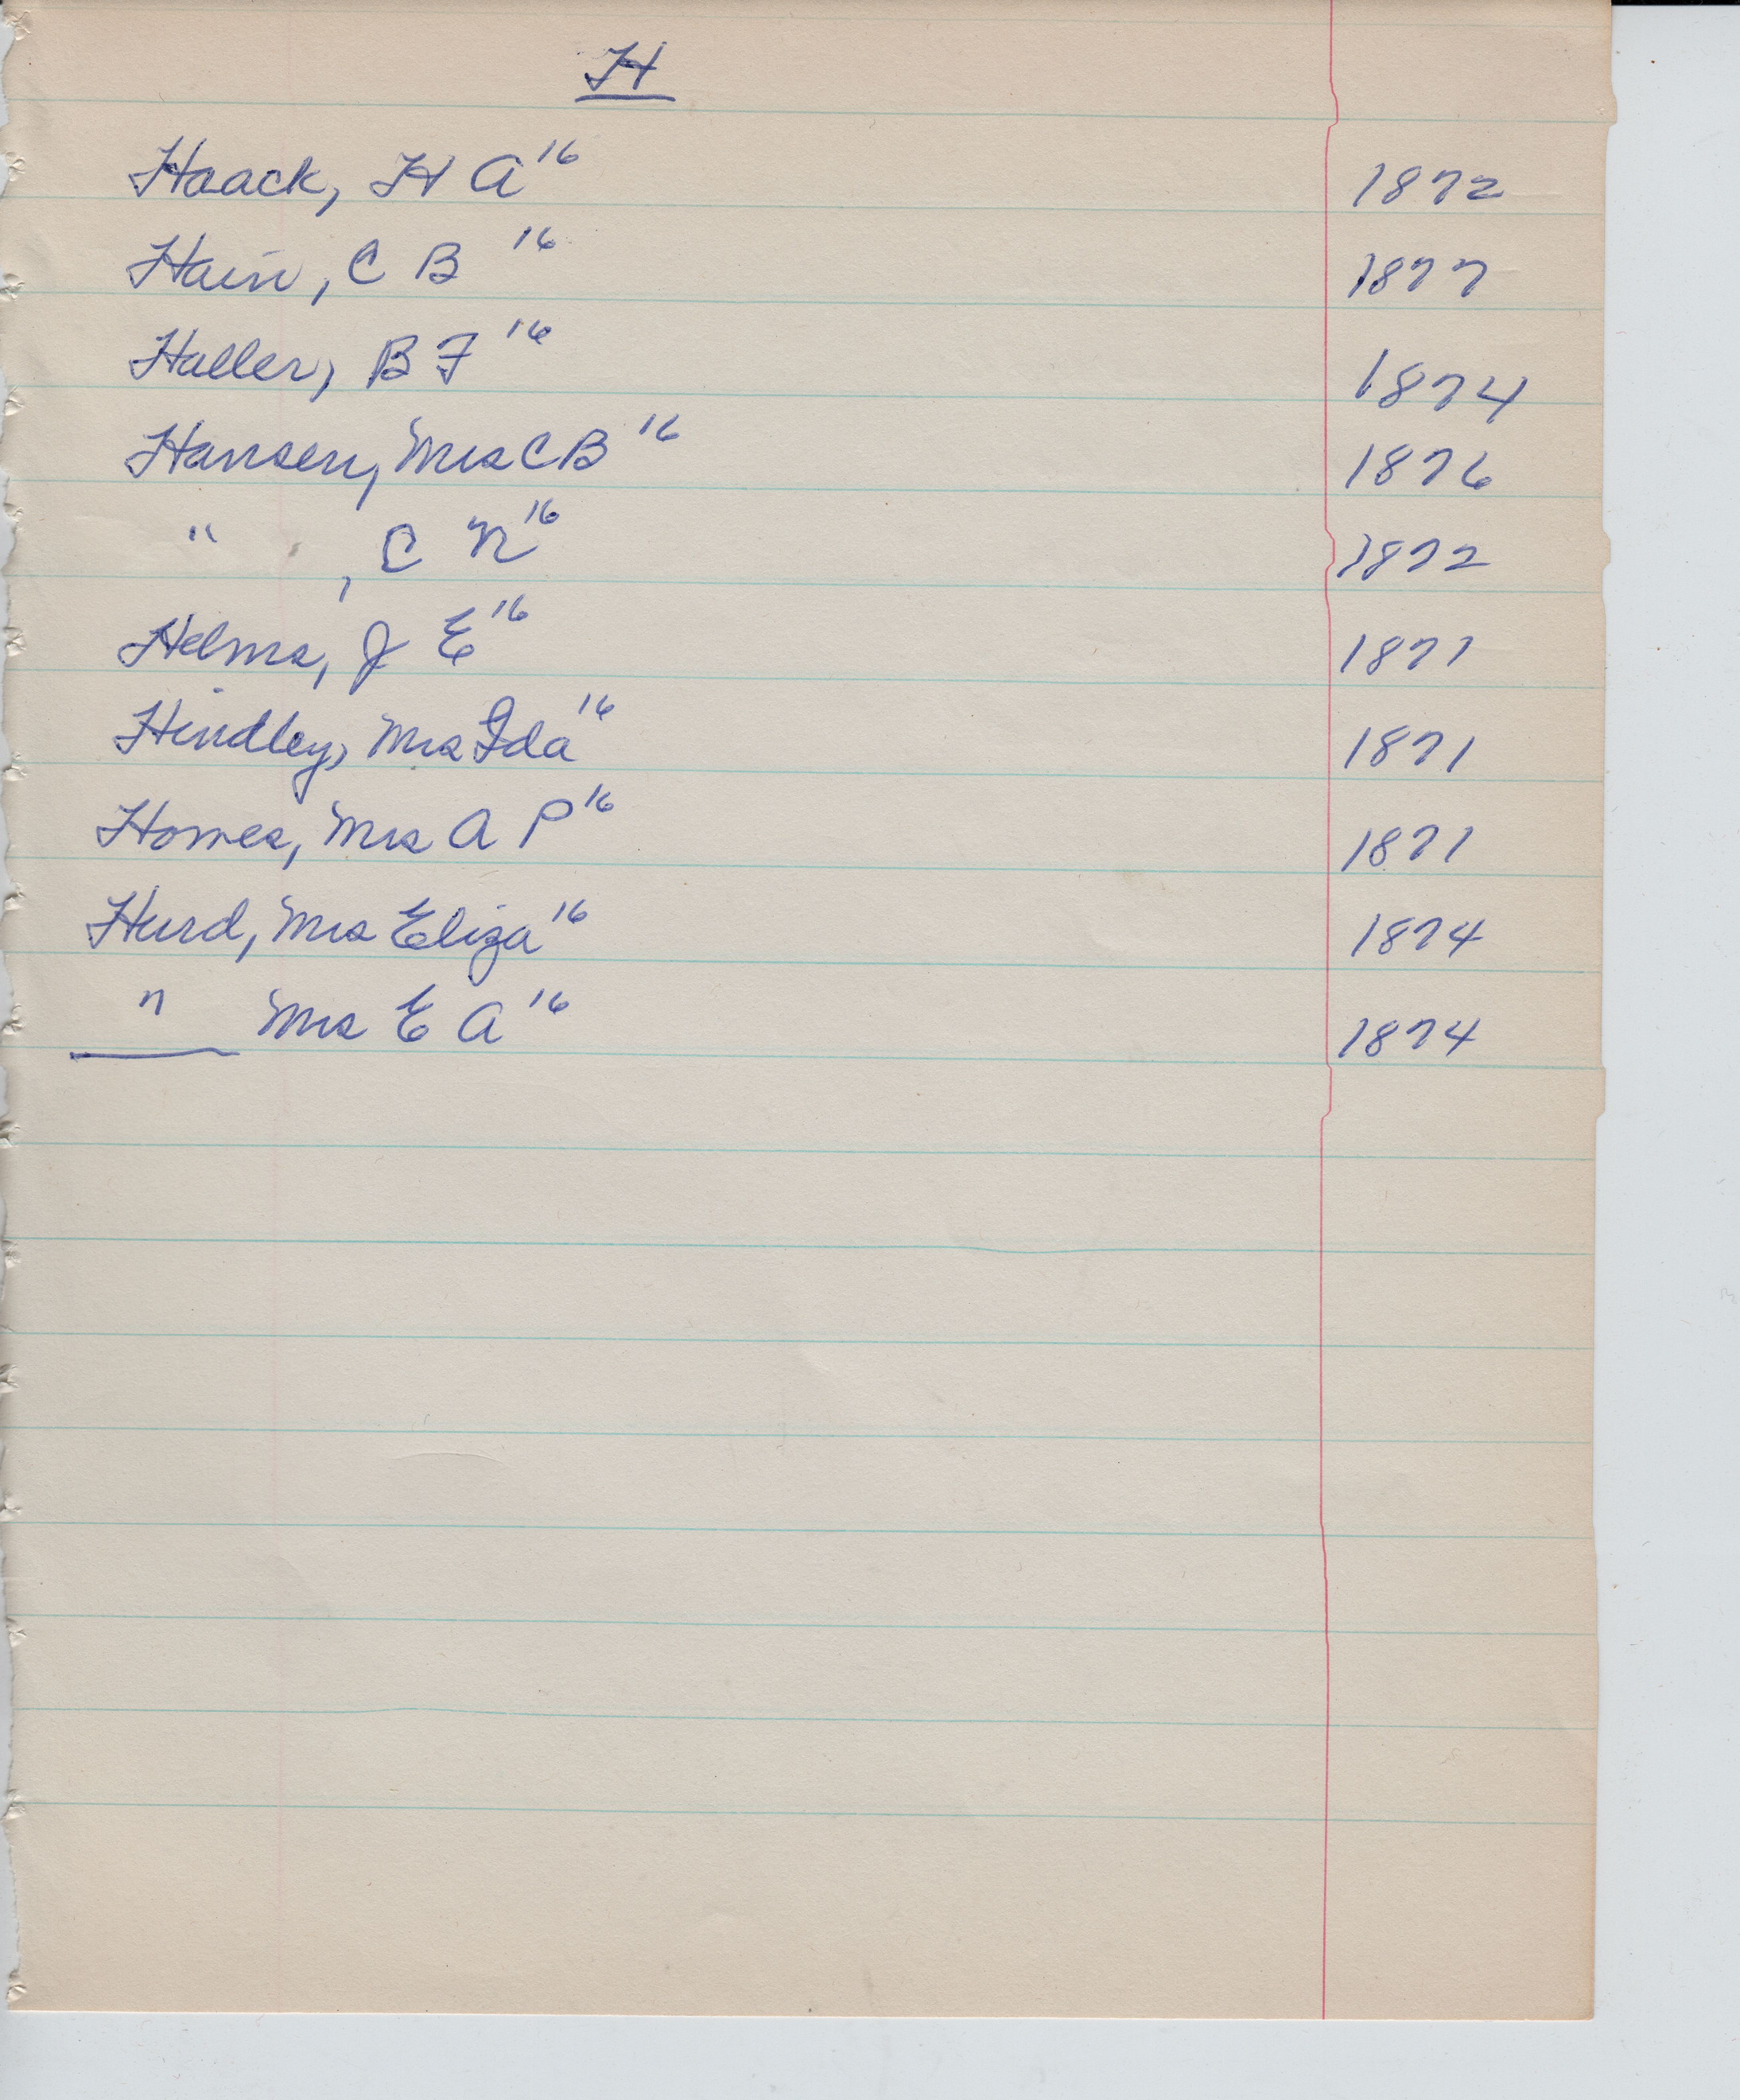 H
Haack, H A 16 1872
Hain, C B 16 1877
Haller, B F 16 1874
Hansen, Mrs C B 16 1876
" , C N 16 1872
Helms, J E 16 1871
Hindley, Mrs Ida 16 1871
Homes, Mrs A P 16 1871
Hurd, Mrs Eliza 16 1874
" Mrs E A 16 1874